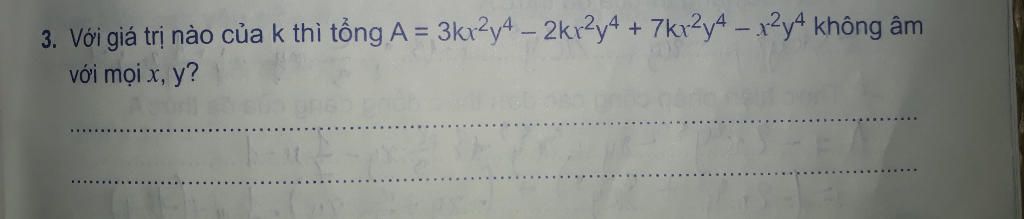 3. Với giá trị nào của k thì tổng A = 3kx²y⁴ – 2kx²y⁴ + 7kx²y⁴ – x²y⁴ không âm
với mọi x, y?